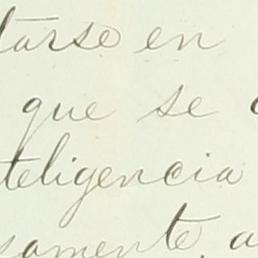 tarse en
que se
teligencia
samente, a